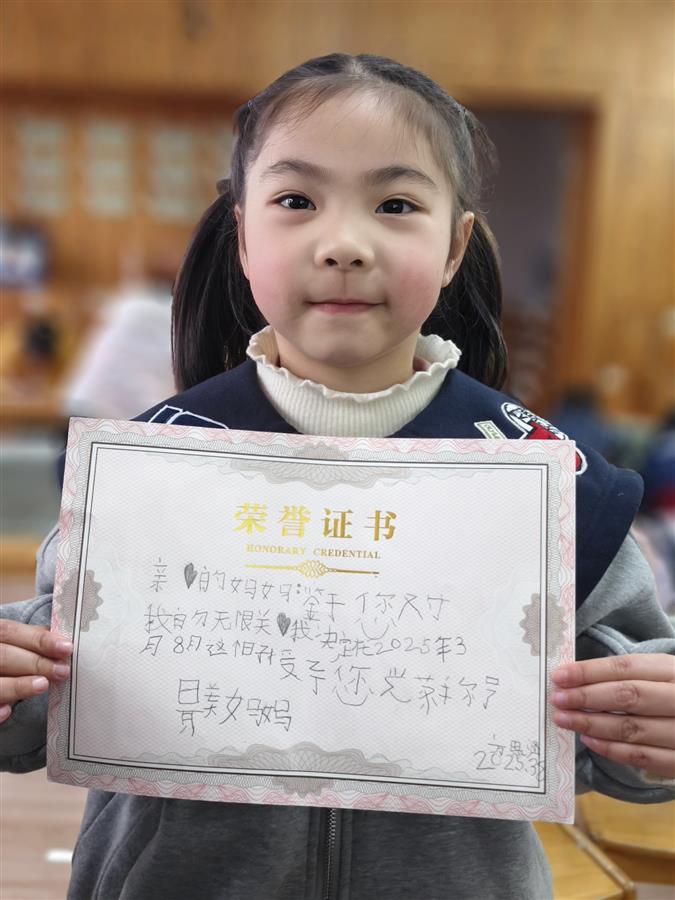 荣誉证书
HONORARY CREDENTIAL
亲♥的妈妈:鉴于您尺寸
我自勿无限关♥我决定在2025年3
月8月这怕升受予您光荣称号
最美妈妈
2025.38